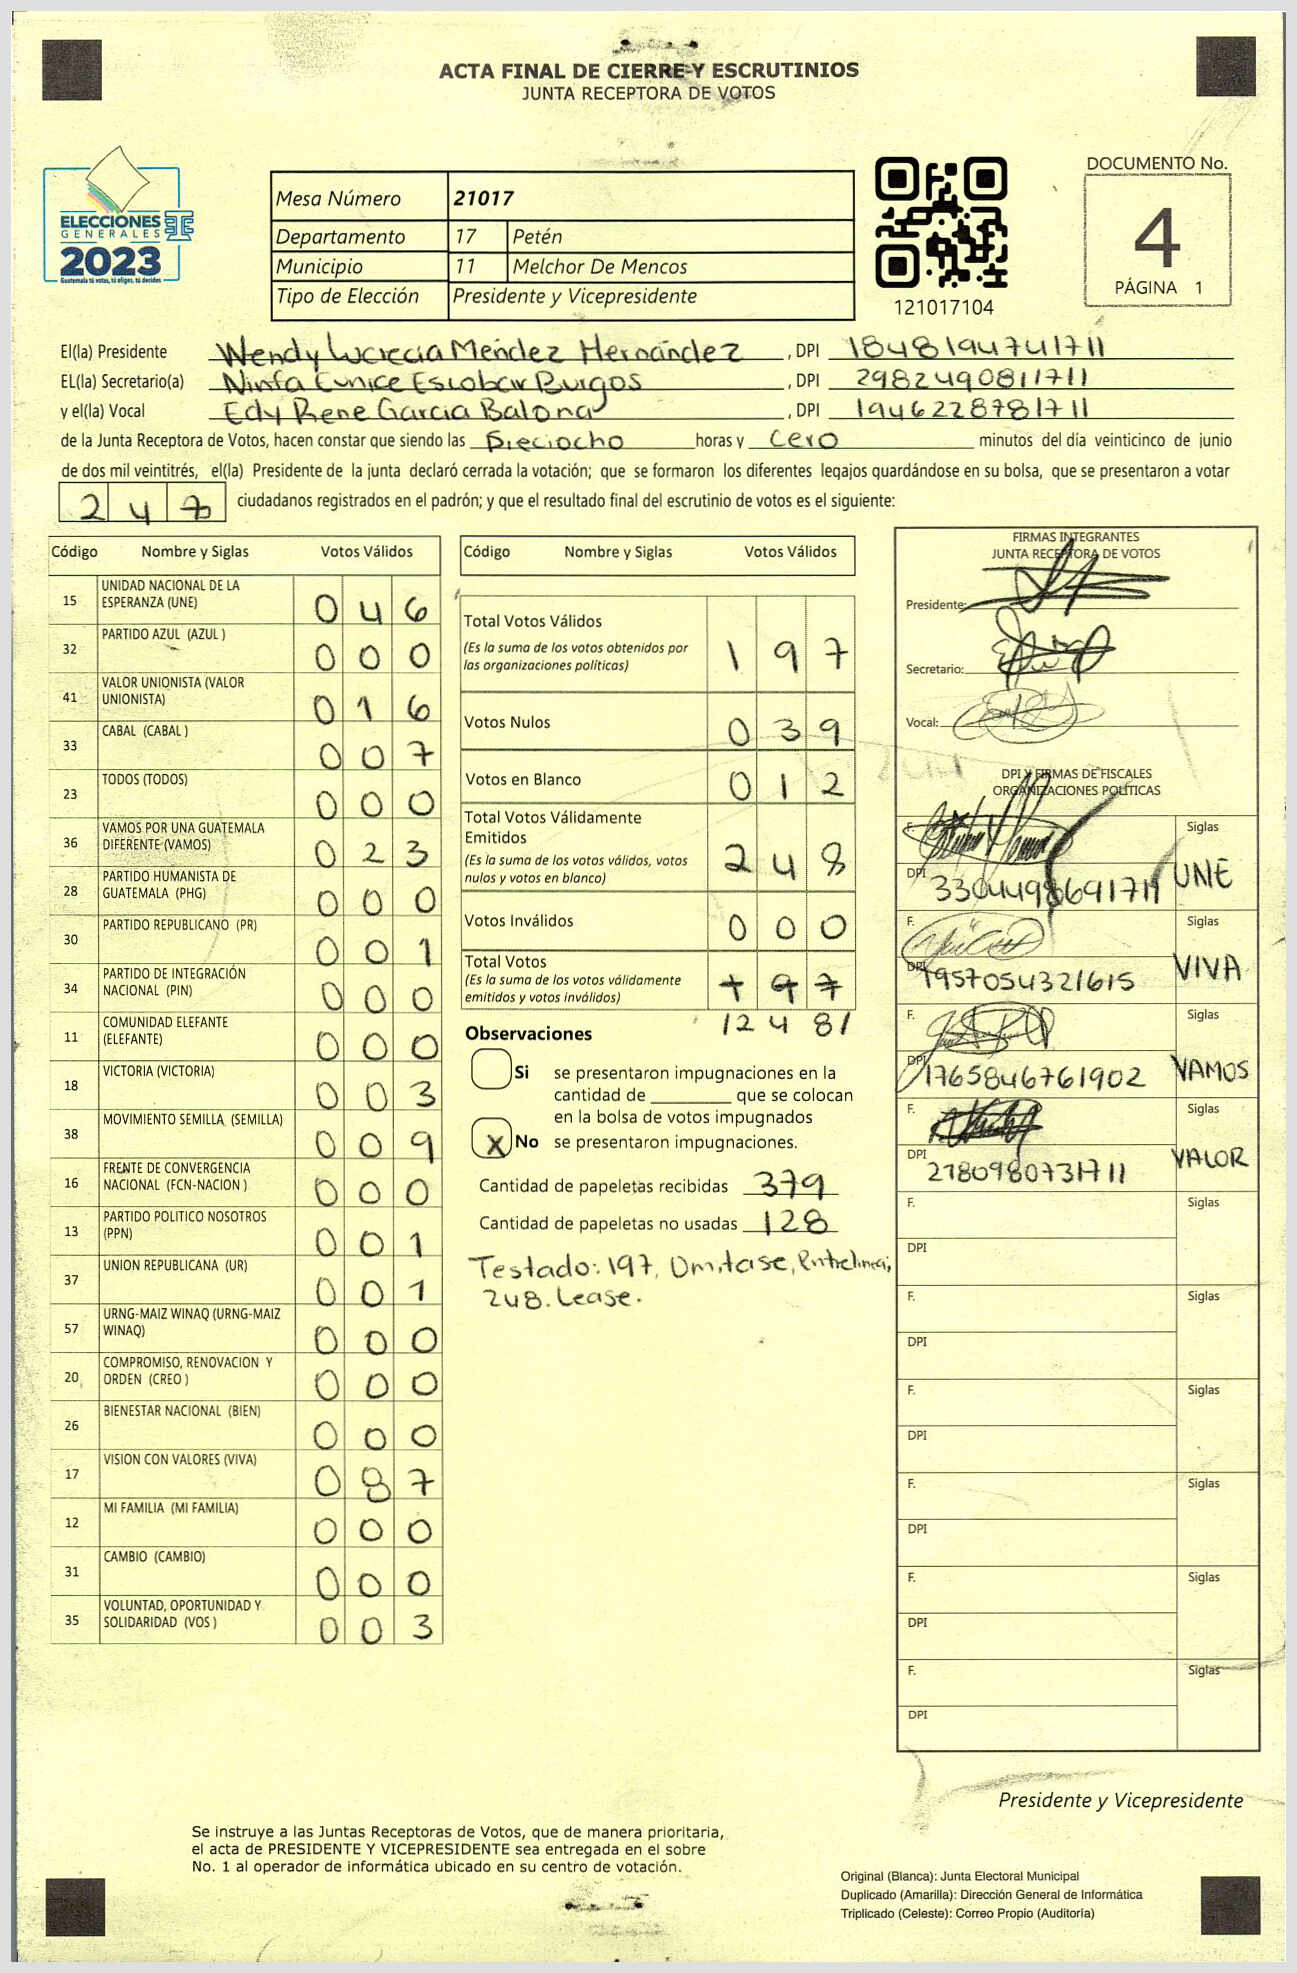 ACTA FINAL DE CIERRE Y ESCRUTINIOS
JUNTA RECEPTORA DE VOTOS
ELECCIONES
GENERALES
2023
Guatemala tú votas, tú eliges, tú decides
Mesa Número 21017
Departamento 17 Petén
Municipio 11 Melchor De Mencos
Tipo de Elección Presidente y Vicepresidente
121017104
DOCUMENTO No.
4
PÁGINA 1
El(la) Presidente Wendy Lucrecia Méndez Hernández, DPI 1848194741711
EL(la) Secretario(a) Ninfa Eunice Escobar Burgos, DPI 2982490811711
y el(la) Vocal Edy Rene Garcia Balona, DPI 1946228781711
de la Junta Receptora de Votos, hacen constar que siendo las Dieciocho horas y cero minutos del día veinticinco de junio
de dos mil veintitrés, el(la) Presidente de la junta declaró cerrada la votación; que se formaron los diferentes legajos guardándose en su bolsa, que se presentaron a votar
247 ciudadanos registrados en el padrón; y que el resultado final del escrutinio de votos es el siguiente:
Código Nombre y Siglas Votos Válidos
15 UNIDAD NACIONAL DE LA
ESPERANZA (UNE) 046
32 PARTIDO AZUL (AZUL ) 000
41 VALOR UNIONISTA (VALOR
UNIONISTA) 016
33 CABAL (CABAL ) 007
23 TODOS (TODOS) 000
36 VAMOS POR UNA GUATEMALA
DIFERENTE (VAMOS) 023
28 PARTIDO HUMANISTA DE
GUATEMALA (PHG) 000
30 PARTIDO REPUBLICANO (PR) 001
34 PARTIDO DE INTEGRACIÓN
NACIONAL (PIN) 000
11 COMUNIDAD ELEFANTE
(ELEFANTE) 000
18 VICTORIA (VICTORIA) 003
38 MOVIMIENTO SEMILLA (SEMILLA) 009
16 FRENTE DE CONVERGENCIA
NACIONAL (FCN-NACION ) 000
13 PARTIDO POLITICO NOSOTROS
(PPN) 001
37 UNION REPUBLICANA (UR) 001
57 URNG-MAIZ WINAQ (URNG-MAIZ
WINAQ) 000
20 COMPROMISO, RENOVACION Y
ORDEN (CREO ) 000
26 BIENESTAR NACIONAL (BIEN) 000
17 VISION CON VALORES (VIVA) 087
12 MI FAMILIA (MI FAMILIA) 000
31 CAMBIO (CAMBIO) 000
35 VOLUNTAD, OPORTUNIDAD Y
SOLIDARIDAD (VOS ) 003
Código Nombre y Siglas Votos Válidos
Total Votos Válidos
(Es la suma de los votos obtenidos por
las organizaciones políticas) 197
Votos Nulos 039
Votos en Blanco 012
Total Votos Válidamente
Emitidos
(Es la suma de los votos válidos, votos
nulos y votos en blanco) 248
Votos Inválidos 000
Total Votos
(Es la suma de los votos válidamente
emitidos y votos inválidos) 197
/248/
Observaciones
Si se presentaron impugnaciones en la
cantidad de ________ que se colocan
en la bolsa de votos impugnados
X No se presentaron impugnaciones.
Cantidad de papeletas recibidas 379
Cantidad de papeletas no usadas 128
Testado: 197, Omitase, Entrelinea;
248. Lease.
FIRMAS INTEGRANTES
JUNTA RECEPTORA DE VOTOS
Presidente:
Secretario:
Vocal:
DPI Y FIRMAS DE FISCALES
ORGANIZACIONES POLÍTICAS
F. Siglas
DPI 3304498691711 UNE
F. Siglas
DPI 1957054321615 VIVA
F. Siglas
DPI 1765846761902 VAMOS
F. Siglas
DPI 2780980731711 VALOR
F. Siglas
DPI
F. Siglas
DPI
F. Siglas
DPI
F. Siglas
DPI
F. Siglas
DPI
F. Siglas
DPI
Presidente y Vicepresidente
Se instruye a las Juntas Receptoras de Votos, que de manera prioritaria,
el acta de PRESIDENTE Y VICEPRESIDENTE sea entregada en el sobre
No. 1 al operador de informática ubicado en su centro de votación.
Original (Blanca): Junta Electoral Municipal
Duplicado (Amarilla): Dirección General de Informática
Triplicado (Celeste): Correo Propio (Auditoría)